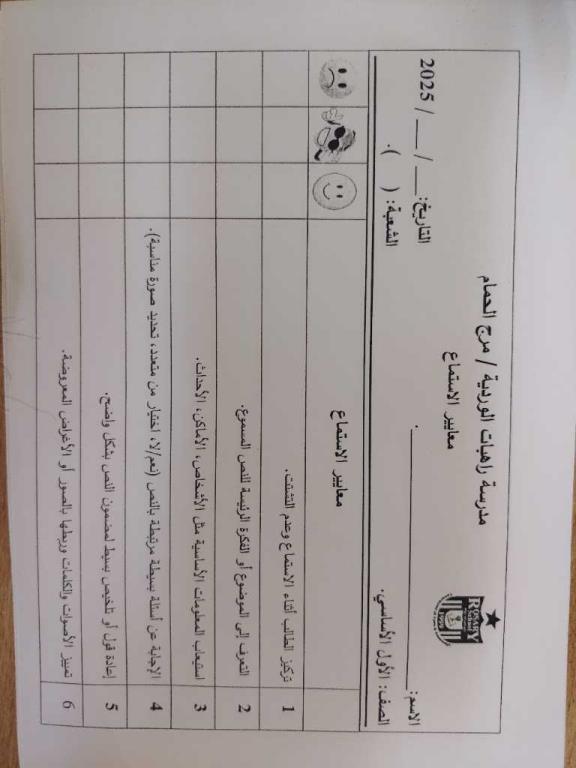 مدرسة راهبات الوردية / مرج الحمام
معايير الاستماع
الاسم: ____________________. التاريخ: ___ / ___ / 2025
الصف: الأول الأساسي. الشعبة: ( ).
معايير الاستماع
1 تركيز الطالب أثناء الاستماع وعدم التشتت.
2 التعرف إلى الموضوع أو الفكرة الرئيسة للنص المسموع.
3 استيعاب المعلومات الأساسية مثل الأشخاص، الأماكن، الأحداث.
4 الإجابة عن أسئلة بسيطة مرتبطة بالنص (نعم/لا، اختيار من متعدد، تحديد صورة مناسبة).
5 إعادة قول أو تلخيص بسيط لمضمون النص بشكل واضح.
6 تمييز الأصوات والكلمات وربطها بالصور أو الأغراض المعروضة.